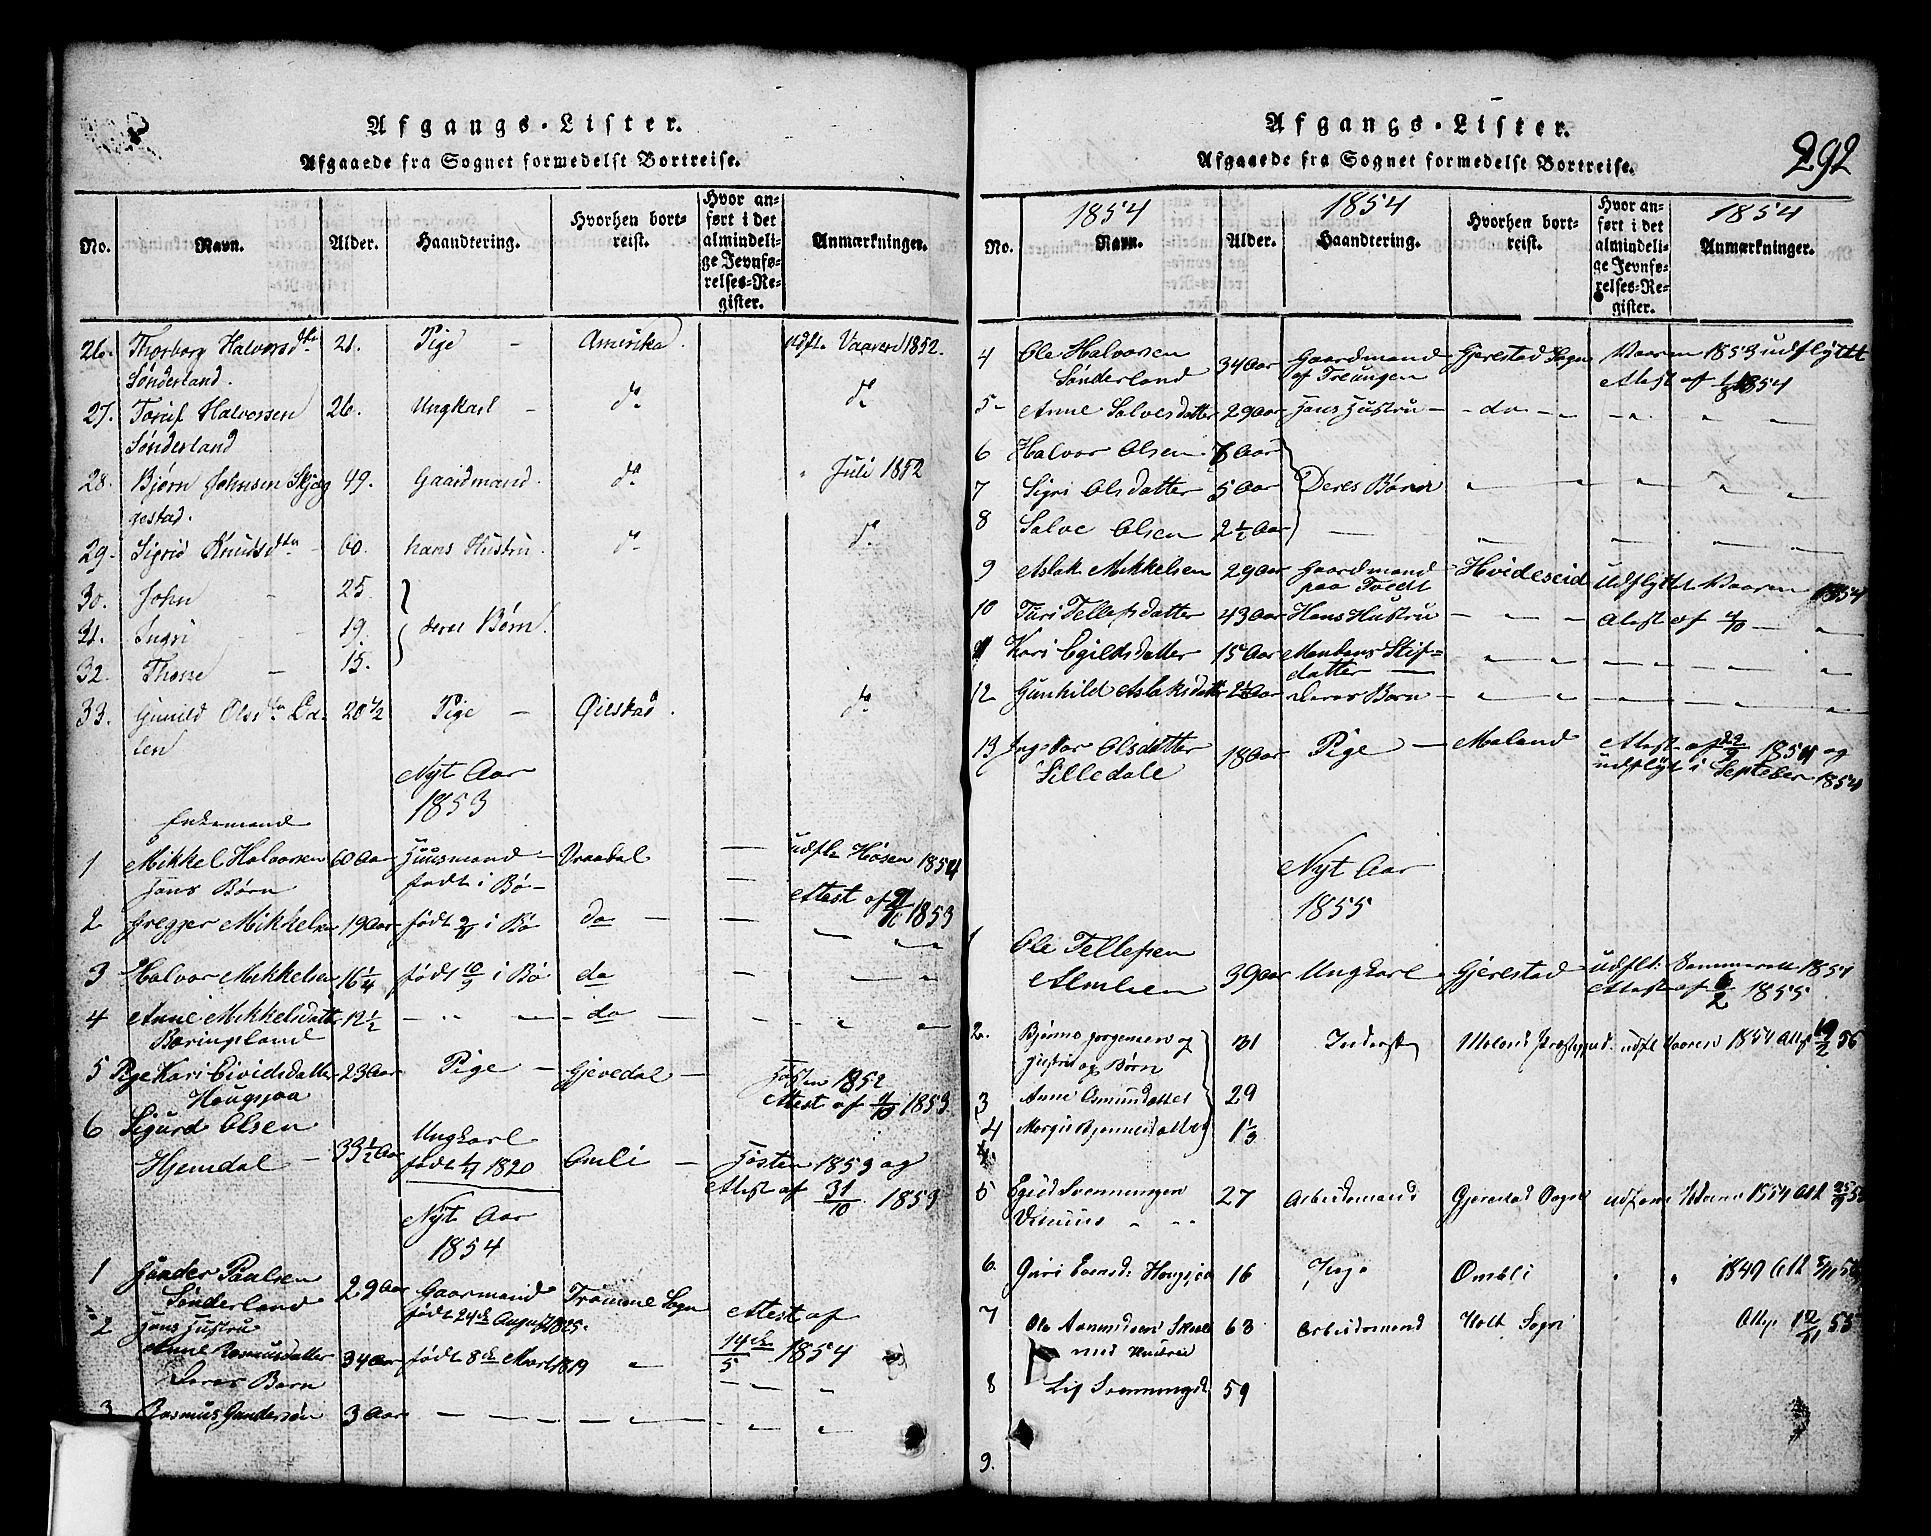 Afgangs-Lister.
Afgaaede fra Sognet formedelst Bortreise.
No. Navn. Alder. Haandtering. Hvorhen bortreist. Hvor anført i det almindelige Jevnførelses-Register. Anmærkninger.
26. Thorborg Halvorsdtr 21. Pige - Amerika. udfl. Vaaren 1852.
Sønderland.
27. Toruf Halvorsen 26. Ungkarl - do do
Sønderland
28. Bjørn Johnsen Skjeg 49. Gaardmand. do " Juli 1852
gestad.
29. Sigrid Knudsdtr - 60. hans Hustru. do do
30. John - 25.
31. Ingri - - 19. deres Børn.
32. Thone - 15.
33. Gunild Olsdtr Dalen 20 1/2 Pige - Øiestad. do
Nyt Aar
1853
Enkemand
1 Mikkel Halvorsen 60 Aar Huusmand - Vraadal - udfl. Høsen 1854
Hans Børn født i Bø - - Attest af 1853
2 Gregger Mikkelsen 19 Aar født i Bø do -
3 Halvor Mikkelsen 16 1/4 født 10/9 i Bø do -
4 Anne Mikkelsdatter 12 1/2 - " - do -
Baringsland
5 Pige Kari Eividsdatter 23 Aar Pige - Gjevedal - Høsten 1852
Haugsjaa Attest af 1/10 1853
6 Sigurd Olsen Ungkarl
Hjemdal - 33 1/2 Aar født 1820 Omli - Høsten 1853 og
Attest af 31/10 1853
Nyt Aar
1854
1 Gunder Paulsen 29 Aar Gaarmand Tromøe Sogn Attest af
Sønderland født 24de August 1825.
2 Hans Hustru 14de/5 1854
Anne Rasmusdatter 34 Aar født 8de Mart 1819 "
Deres Barn
3 Rasmus Gundersøn 3 Aar - - -
Afgangs-Lister.
292
Afgaaede fra Sognet formedelst Bortreise.
1854 1854 1854
No. Navn. Alder. Haandtering. Hvorhen bortreist. Hvor anført i det almindelige Jevnførelses-Register. Anmærkninger.
4 Ole Halvorsen 34 Aar Gaardmand Gjerestad Sogn Vaaren 1853 udflyttt
Sønderland af Treungen Attest af 1854
5 - Anne Salvesdatter 29 Aar Hans Hustru - - do - -
6 Halvor Olsen 7 Aar
7 Sigri Olsdatter 5 Aar Deres Børn
8 Salve Olsen 2 1/2 Aar -
9 Aslak Mikkelsen 29 Aar Gaardmand Hvideseid Udflyttet Vaaren 1854
paa Tvedt
10 Turi Tellefsdatter 43 Aar Hans Hustru - - - Atest af 4/10 -
11 Kari Egildsdatter 15 Aar Mandens Stif=
datter
12 Gunhild Aslaksdatter 2 1/2 Aar Deres Barn -
13 Ingebor Olsdatter 18 Aar Pige - Moland Attest af 29/9 1854 og
Lilledale udflyt i Septeber 1854
Nyt Aar
1855
1 Ole Tellefsen
Almlien 39 Aar Ungkarl Gjerestad udflt: Sommeren 1854
Attest af 6/2 1855
2. Bjørnn Jørgensen og 31 Inderst Moland Præstegjed. udfl Vaaren 1854 Att 19/2 56
Hustru og Børn
3 Anne Osmundattet 29
4 Margit Bjønnesdatter 1 1/3
5 Egild Svenningen 27 Arbeidsmand Gjerestad Sogn udfl Vaaren 1854 Att 25/9 55
6. Guri Evensd: Hougsjaa 16 Pige Ombli " " 1849 Att
7 Ole Aanundsen 63 Arbeidsmend Holt Sogn Atts: 12/11 55
med Hustru
8 Liv Svenningsd 59
9.